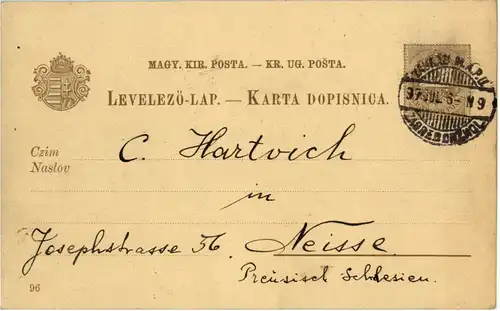 MAGY. KIR. POSTA. — KR. UG. POŠTA.
LEVELEZÖ-LAP. — KARTA DOPISNICA.
Czim
Naslov
C. Hartvich
in
Josephstrasse 56. Neisse
Preusisch Schlesien.
96